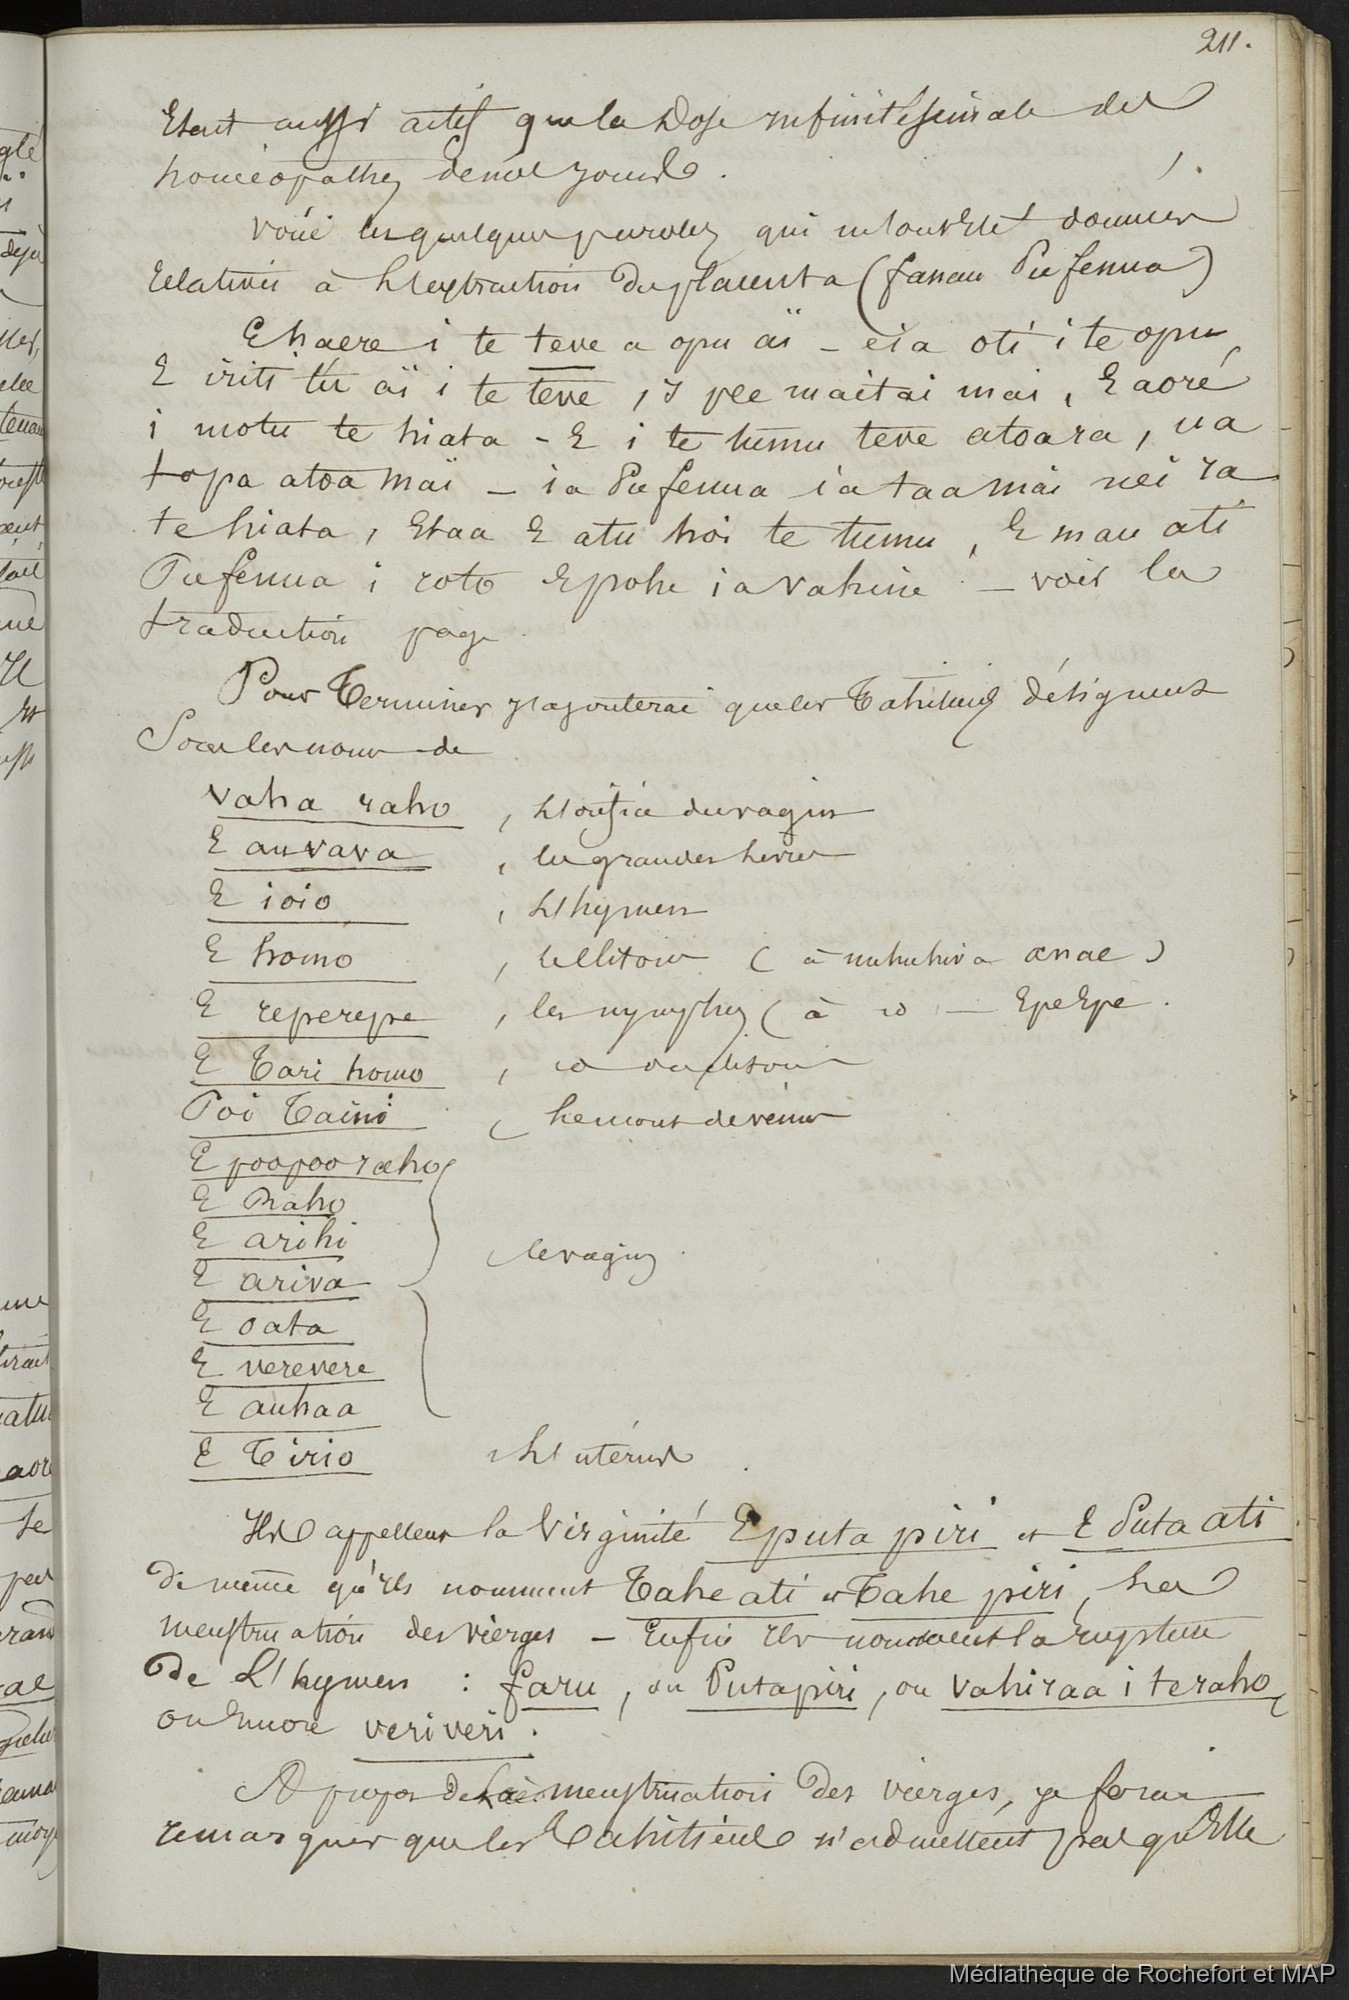 211.
Etant aussi actif que la Dose infinitesimale des
homéopathes de nos jours.
Voici les quelques paroles qui m'ont été données
relatives à l'extraction du placenta (fanau Pu fenua)
E haere i te teve a opu äi – eia oti i te opu,
E iriti tu äi i te teve, i pee maitai mai, E aoré
i motu te hiata – E i te tumu teve atoara, ua
topa atoa mäi – ia Pu fenua ia taa mai nei ra
te hiata, Etaa E atu hoi te tumu, E mau ati
Pu fenua i roto E pohe ia vahine – voir la
traduction page
Pour Terminer j'ajouterai que les Tahitiens désignent
Sous les noms de
vaha raho , L'orifice du vagin
E auvava , les grandes lèvres
E ioio , L'hymen
E homo , le clitoris (à nukuhiva anae)
E reperepe , les nymphes (à id – Epe Epe.
E Tari homo , id du clitoris
Poi Taini , le mont de vénus
E poopoo raho
E Raho
E arihi
E ariva
le vagin
E oata
E verevere
E auhaa
E Tirio L'utérus
Ils appellent la Virginité E puta piri et E Puta ati
de même qu'ils nomment Tahe ati et Tahe piri, La
menstruation des vierges – Enfin ils nomment la rupture
De L'hymen : faru, ou Puta piri, ou vahiraa i te raho,
ou Encore veriveri.
A propos de la menstruation des vierges, je ferai
remarquer que les Tahitiens n'admettent pas qu'Elle
Médiathèque de Rochefort et MAP